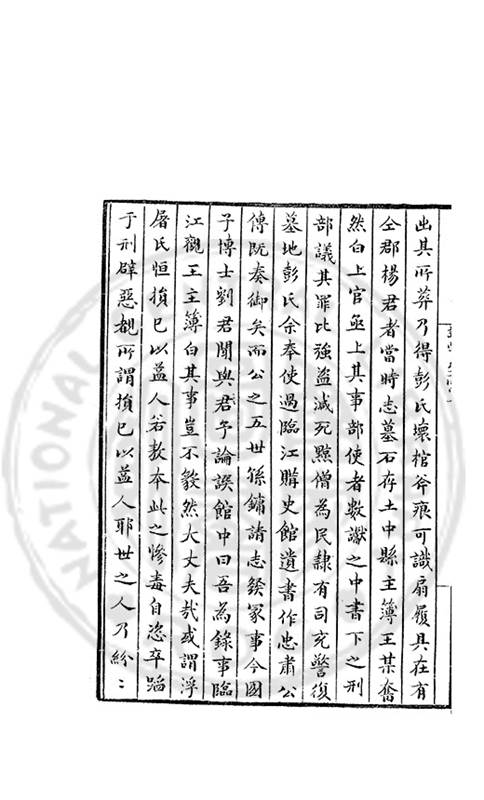 出其所葬乃得彭氏壞棺斧痕可識扇履具在有
仝郡楊君者當時志墓石存土中縣主簿王某奮
然白上官亟上其事部使者數讞之中書下之刑
部議其罪比強盜減死黥僧為民隸有司充警復
墓地彭氏余奉使過臨江購史館遺書作忠肅公
傳既奏御矣而公之五世孫鏞請志發冢事今國
子博士劉君聞與君予論譔館中曰吾為錄事臨
江觀王主簿白其事豈不毅然大丈夫哉或謂浮
屠氏恒損已以益人若教本此之慘毒自恣卒蹈
于刑辟惡覩所謂損已以益人耶世之人乃紛〻
NATIONAL